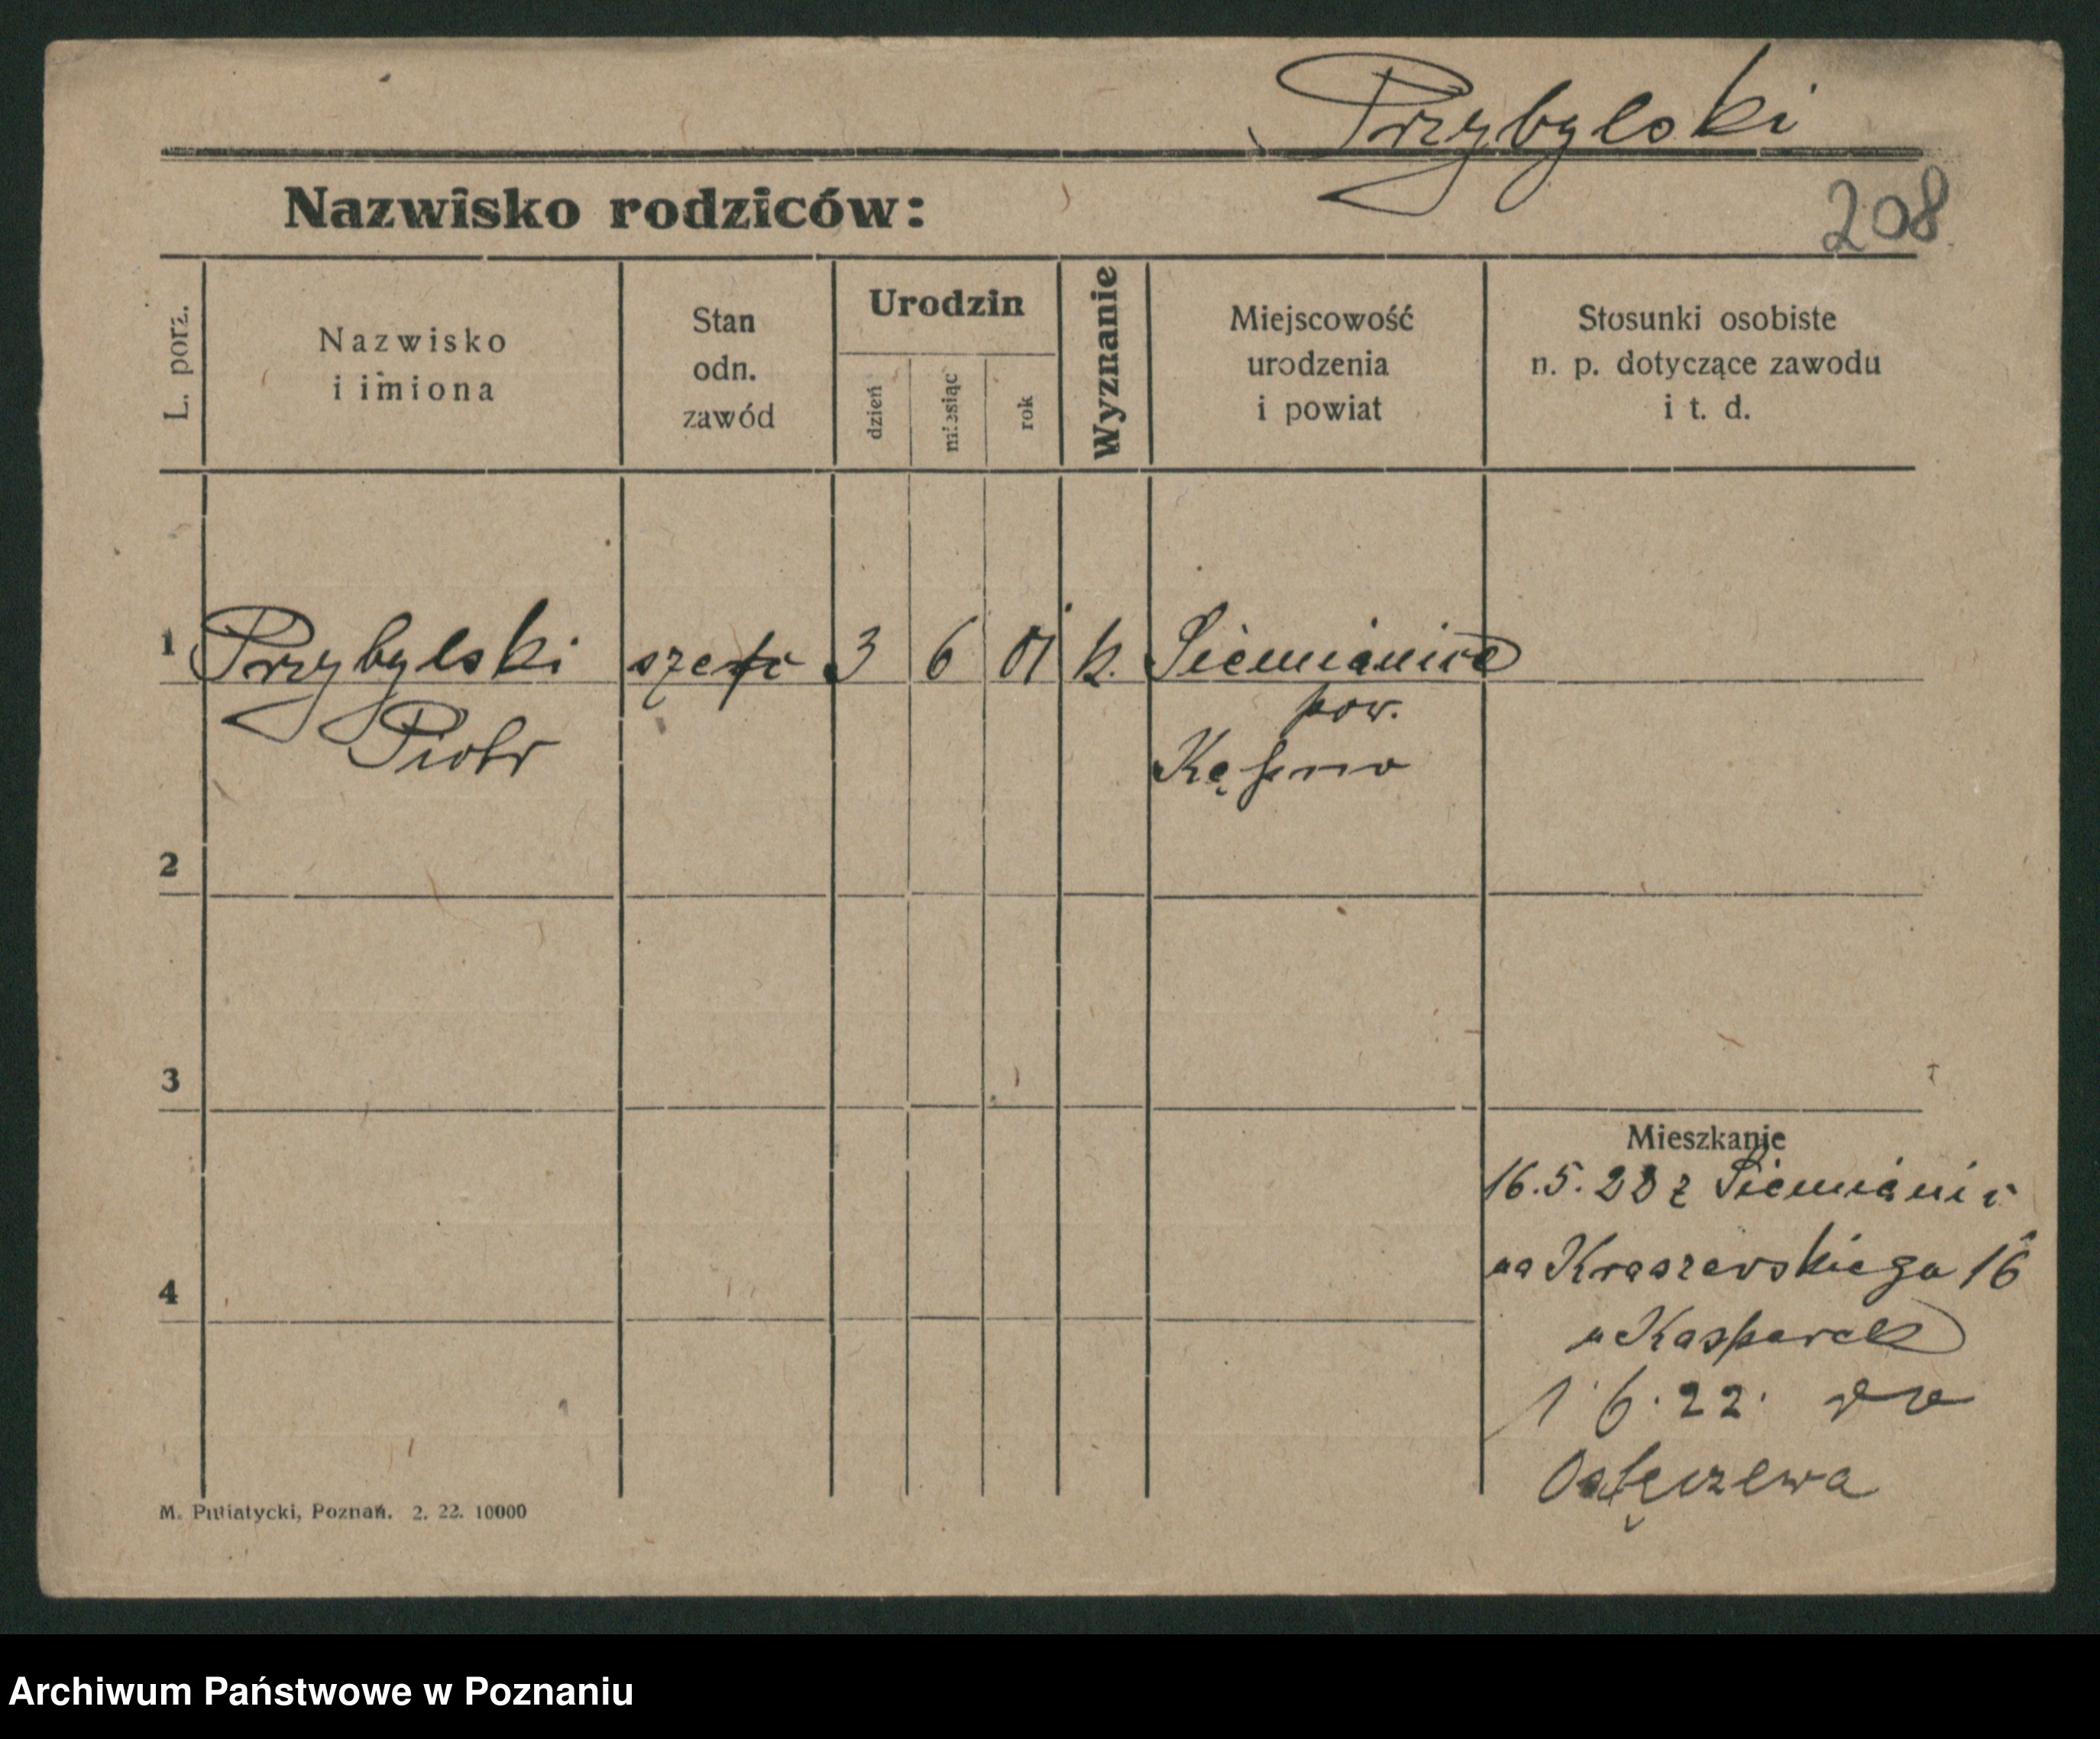 Przybylski
Nazwisko rodziców:
208
L. porz.
Nazwisko
i imiona
Stan
odn.
zawód
Urodzin
dzień
miesiąc
rok
Wyznanie
Miejscowość
urodzenia
i powiat
Stosunki osobiste
n. p. dotyczące zawodu
i t. d.
1 Przybylski 3 6 01 k. Siemianice
pow.
Piotr Kępno
2
3
Mieszkanie
16.5.22 z Siemianic
na Kraszewskiego 16
u Kasparek
4
1 6.22. do
M. Putiatycki, Poznań. 2. 22. 10000
Archiwum Państwowe w Poznaniu